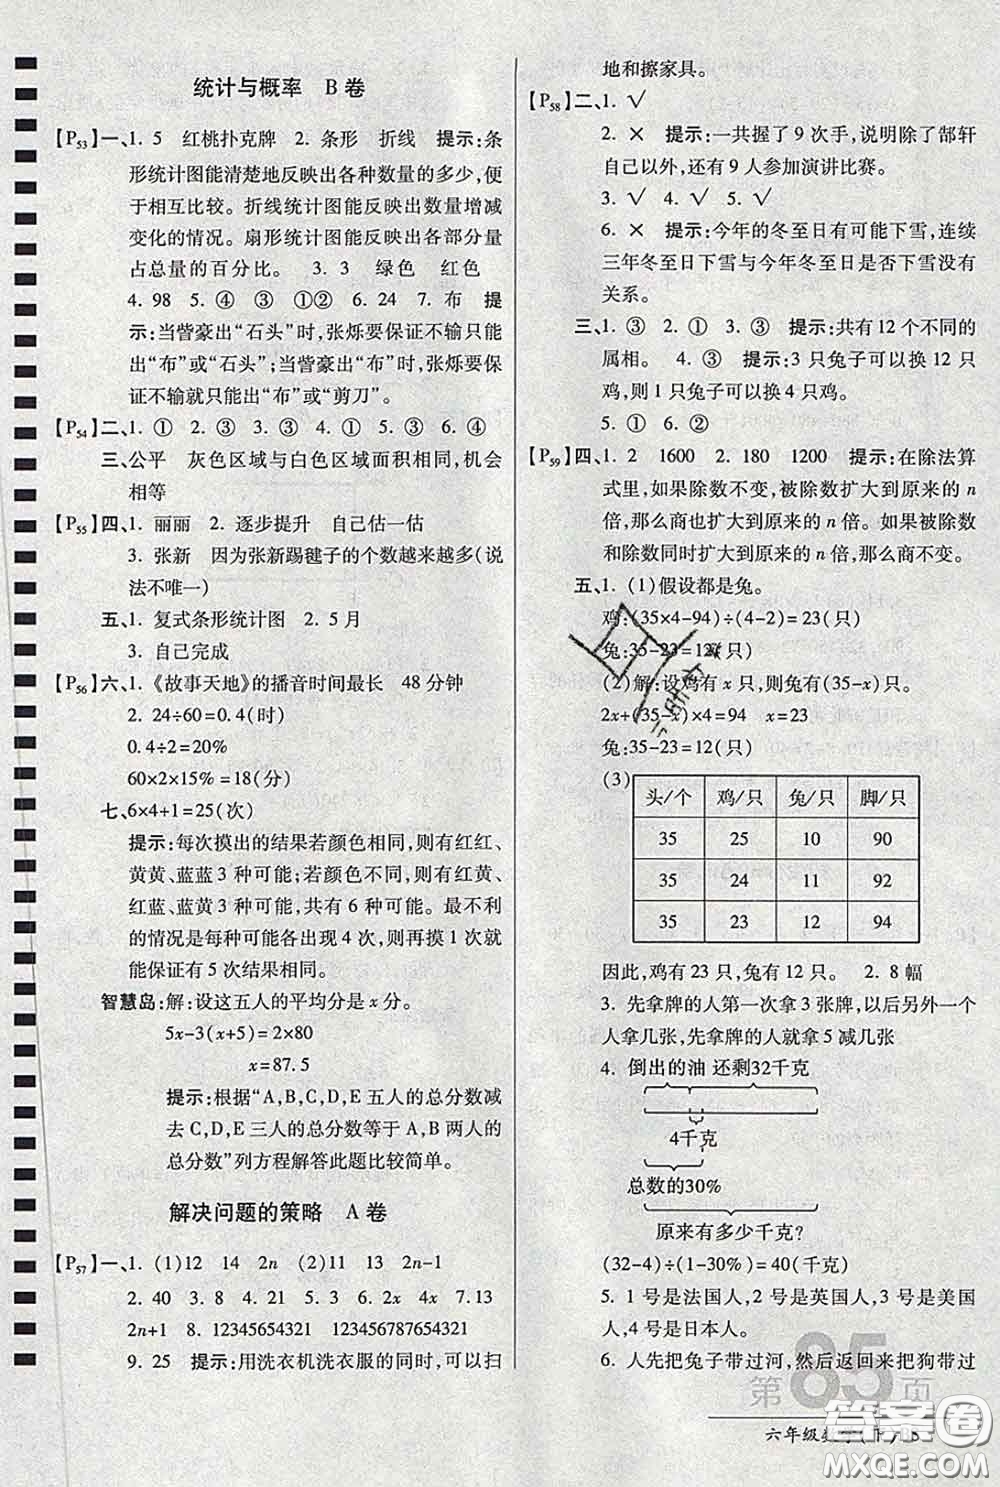 统计与概率 B卷
【P53】一、1. 5 红桃扑克牌 2. 条形 折线 提示:条
形统计图能清楚地反映出各种数量的多少,便
于相互比较。折线统计图能反映出数量增减
变化的情况。扇形统计图能反映出各部分量
占总量的百分比。 3. 3 绿色 红色
4. 98 5. ④ ③ ①② 6. 24 7. 布 提
示:当訾豪出“石头”时,张烁要保证不输只能
出“布”或“石头”;当訾豪出“布”时,张烁要保
证不输就只能出“布”或“剪刀”。
【P54】二、1. ① 2. ③ 3. ③ 4. ③ 5. ③ 6. ④
三、公平 灰色区域与白色区域面积相同,机会
相等
【P55】四、1. 丽丽 2. 逐步提升 自己估一估
3. 张新 因为张新踢毽子的个数越来越多(说
法不唯一)
五、1. 复式条形统计图 2. 5月
3. 自己完成
【P56】六、1.《故事天地》的播音时间最长 48分钟
2. 24÷60=0.4(时)
0.4÷2=20%
60×2×15%=18(分)
七、6×4+1=25(次)
提示:每次摸出的结果若颜色相同,则有红红、
黄黄、蓝蓝3种可能;若颜色不同,则有红黄、
红蓝、蓝黄3种可能,共有6种可能。最不利
的情况是每种可能各出现4次,则再摸1次就
能保证有5次结果相同。
智慧岛:解:设这五人的平均分是x分。
5x-3(x+5)=2×80
x=87.5
提示:根据“A,B,C,D,E五人的总分数减
去C,D,E三人的总分数等于A,B两人的
总分数”列方程解答此题比较简单。
解决问题的策略 A卷
【P57】一、1. (1)12 14 2n (2)11 13 2n-1
2. 40 3. 8 4. 21 5. 3 6. 2x 4x 7.13
2n+1 8. 12345654321 123456787654321
9. 25 提示:用洗衣机洗衣服的同时,可以扫
地和擦家具。
【P58】二、1. √
2. × 提示:一共握了9次手,说明除了郜轩
自己以外,还有9人参加演讲比赛。
3. √ 4. √ 5. √
6. × 提示:今年的冬至日有可能下雪,连续
三年冬至日下雪与今年冬至日是否下雪没有
关系。
三、1. ③ 2. ① 3. ③ 提示:共有12个不同的
属相。 4. ③ 提示:3只兔子可以换12只
鸡,则1只兔子可以换4只鸡。
5. ① 6. ②
【P59】四、1. 2 1600 2. 180 1200 提示:在除法算
式里,如果除数不变,被除数扩大到原来的n
倍,那么商也扩大到原来的n倍。如果被除数
和除数同时扩大到原来的n倍,那么商不变。
五、1. (1)假设都是兔。
鸡:(35×4-94)÷(4-2)=23(只)
兔:35-23=12(只)
(2)解:设鸡有x只,则兔有(35-x)只。
2x+(35-x)×4=94 x=23
兔:35-23=12(只)
(3)
头/个 鸡/只 兔/只 脚/只
35 25 10 90
35 24 11 92
35 23 12 94
因此,鸡有23只,兔有12只。 2. 8幅
3. 先拿牌的人第一次拿3张牌,以后另外一个
人拿几张,先拿牌的人就拿5减几张
4. 倒出的油 还剩32千克
4千克
总数的30%
原来有多少千克?
(32-4)÷(1-30%)=40(千克)
5. 1号是法国人,2号是英国人,3号是美国
人,4号是日本人。
6. 人先把兔子带过河,然后返回来把狗带过
第85页
六年级数学(下)
答案圈
MXQE.COM